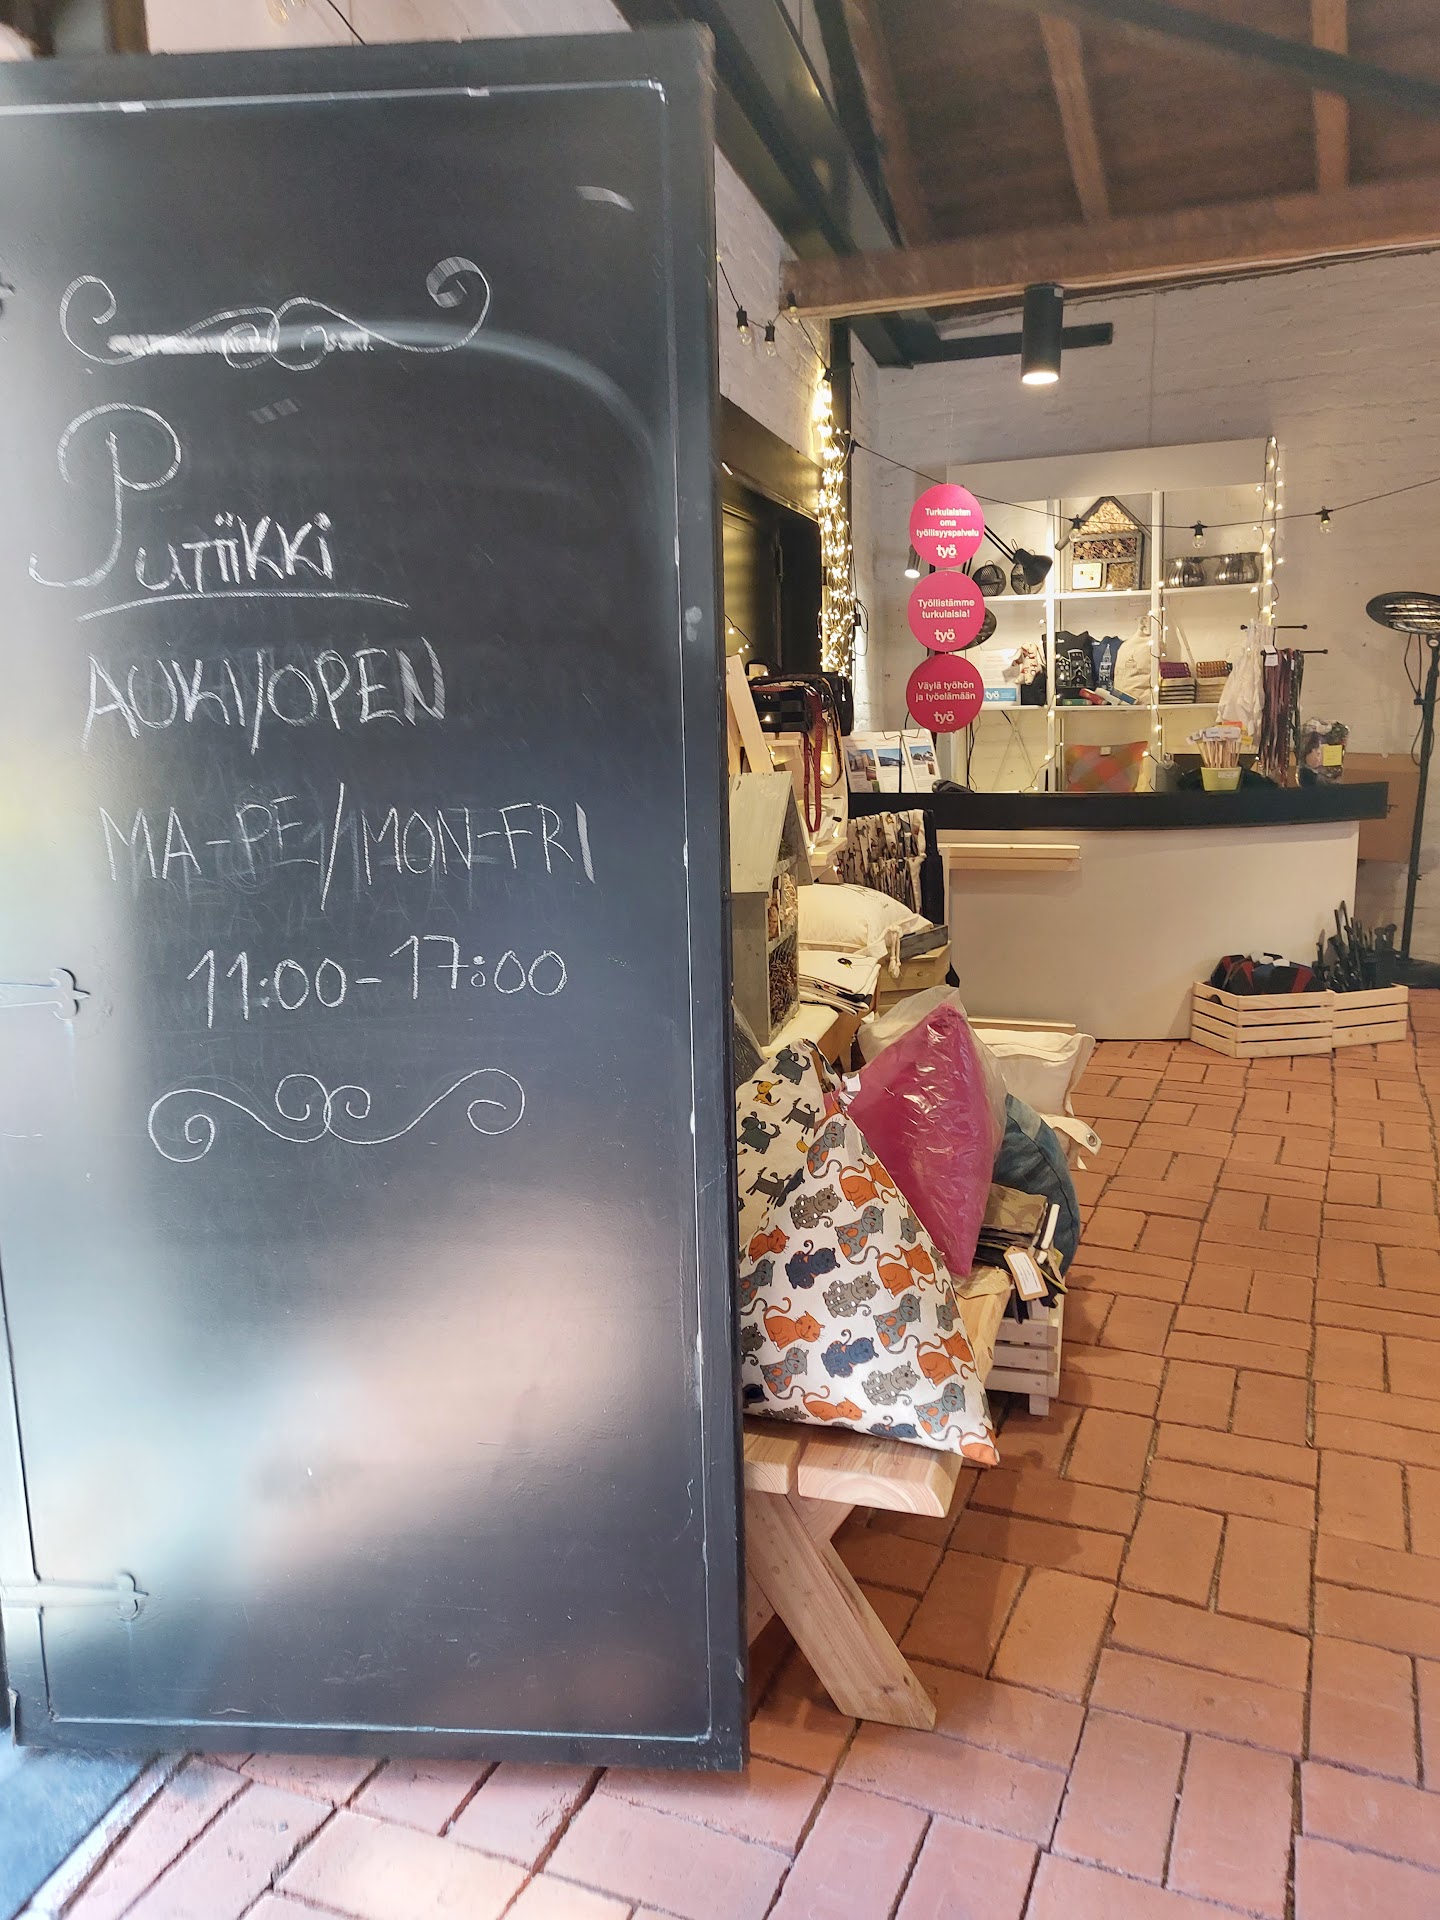 Putiikki
AUKI/OPEN
MA-PE/MON-FRI
11:00-17:00
Turkulaisten
oma
työllisyyspalvelu
työ
Työllistämme
turkulaisia!
työ
Väylä työhön
ja työelämään
työ
työ